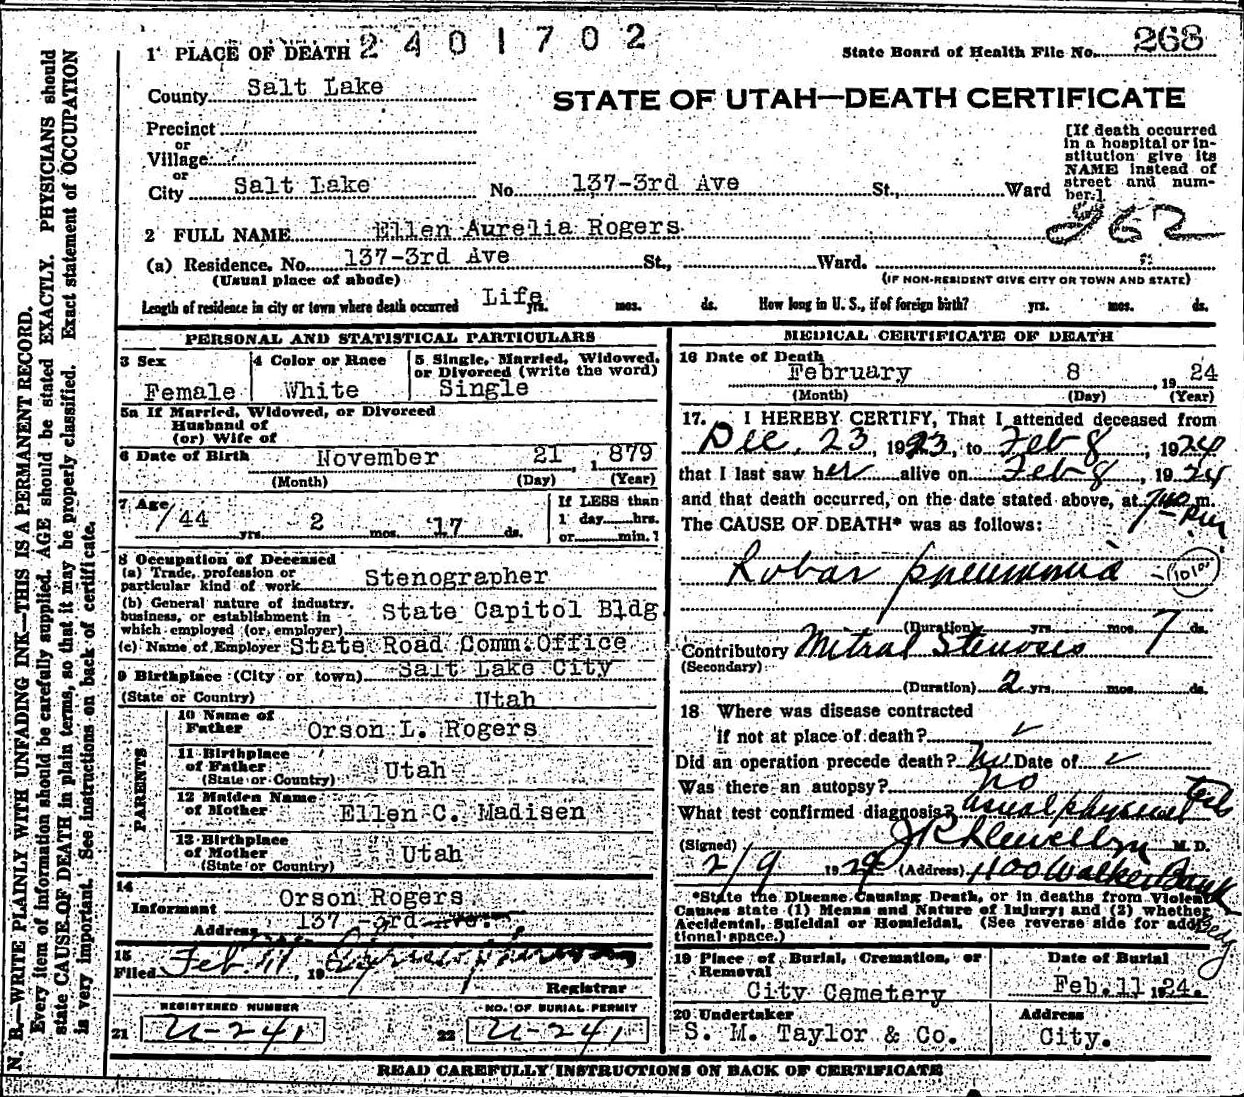 1 PLACE OF DEATH 2401702
State Board of Health File No. 268
County Salt Lake
STATE OF UTAH—DEATH CERTIFICATE
Precinct
or
Village
or
City Salt Lake No. 137-3rd Ave St., Ward
[If death occurred
in a hospital or in-
stitution give its
NAME instead of
street and num-
ber.]
262
2 FULL NAME Ellen Aurelia Rogers
(a) Residence. No. 137-3rd Ave St., Ward.
(Usual place of abode) (IF NON-RESIDENT GIVE CITY OR TOWN AND STATE)
Length of residence in city or town where death occurred Life yrs. mos. ds. How long in U. S., if of foreign birth? yrs. mos. ds.
PERSONAL AND STATISTICAL PARTICULARS
3 Sex Female
4 Color or Race White
5 Single, Married, Widowed,
or Divorced (write the word)
Single
5a If Married, Widowed, or Divorced
Husband of
(or) Wife of
6 Date of Birth November 21, 1879
(Month) (Day) (Year)
7 Age 44 yrs. 2 mos. 17 ds.
If LESS than
1 day hrs.
or min.?
8 Occupation of Deceased
(a) Trade, profession or
particular kind of work Stenographer
(b) General nature of industry,
business, or establishment in
which employed (or employer) State Capitol Bldg
(c) Name of Employer State Road Comm. Office
9 Birthplace (City or town) Salt Lake City
(State or Country) Utah
PARENTS
10 Name of
Father Orson L. Rogers
11 Birthplace
of Father Utah
(State or Country)
12 Maiden Name
of Mother Ellen C. Madisen
13 Birthplace
of Mother Utah
(State or Country)
14
Informant Orson Rogers
Address 137 -3rd Ave.
15
Filed Feb. 11, 19
Registrar
REGISTERED NUMBER
21 U-241
NO. OF BURIAL PERMIT
22 U-241
MEDICAL CERTIFICATE OF DEATH
16 Date of Death
February 8, 1924
(Month) (Day) (Year)
17. I HEREBY CERTIFY, That I attended deceased from
Dec. 23, 1923, to Feb 8, 1924
that I last saw her alive on Feb 8, 1924
and that death occurred, on the date stated above, at 7 40 m.
pm
The CAUSE OF DEATH* was as follows:
Lobar pneumonia
(Duration) yrs. mos. 7 ds.
Contributory Mitral Stenosis
(Secondary)
(Duration) 2 yrs. mos. ds.
18 Where was disease contracted
if not at place of death?
Did an operation precede death? No Date of
Was there an autopsy? no
What test confirmed diagnosis? usual physical tests
(Signed) J R Llewellyn M. D.
2/9 1924 (Address) 1100 Walker Bank
Bldg
*State the Disease Causing Death, or in deaths from Violent
Causes state (1) Means and Nature of Injury; and (2) whether
Accidental, Suicidal or Homicidal. (See reverse side for addi-
tional space.)
19 Place of Burial, Cremation, or
Removal
City Cemetery
Date of Burial
Feb. 11 1924.
20 Undertaker
S. M. Taylor & Co.
Address
City.
READ CAREFULLY INSTRUCTIONS ON BACK OF CERTIFICATE
N. B.—WRITE PLAINLY WITH UNFADING INK—THIS IS A PERMANENT RECORD.
Every item of information should be carefully supplied. AGE should be stated EXACTLY. PHYSICIANS should
state CAUSE OF DEATH in plain terms, so that it may be properly classified. Exact statement of OCCUPATION
is very important. See instructions on back of certificate.